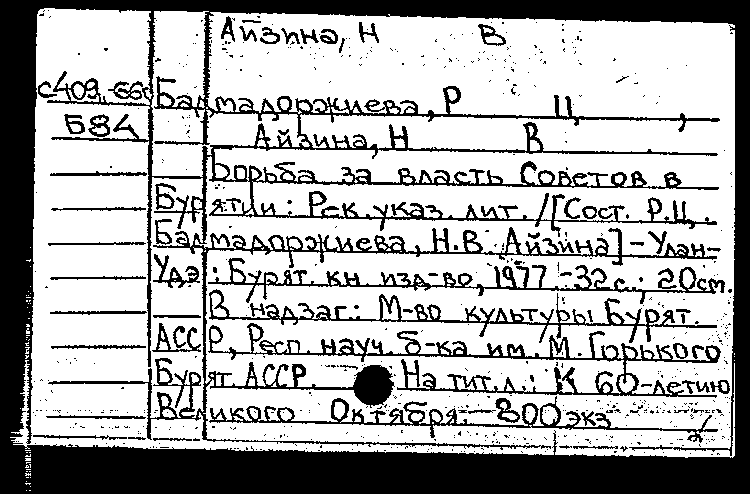 Айзина, Н В
Бадмадоржиева, Р Ц ,
584
Айзина, Н В
Борьба за власть Советов в
Бурятии: Рек. указ. лит. / [Сост. Р.Ц.
Бадмадоржиева, Н.В. Айзина] - Улан-
Удэ: Бурят. кн. изд-во, 1977 -32с.; 20см.
В надзаг.: М-во культуры Бурят.
АССР, Респ. науч. б-ка им. М. Горького
Бурят. АССР. На тит. л.: К 60-летию
Великого Октября. - 800 экз